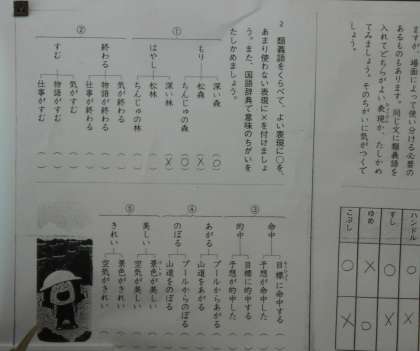 ますが、場面によって使い分ける必要の
あるものもあります。同じ文に類義語を
入れてどちらがよい表現か、たしかめ
てみましょう。そのちがいに気がつくで
しょう。
ハンドル
すし
ゆめ
こぶし
○
○
○
×
×
○
○
×
2 類義語をくらべて、よい表現に○を、
あまり使わない表現に×を付けましょ
う。また、国語辞典で意味のちがいを
たしかめましょう。
①
もり
深い森 (○)
松森 (×)
ちんじゅの森 (○)
はやし
深い林 (×)
松林 ( )
ちんじゅの林 ( )
②
終わる
気が終わる ( )
物語が終わる ( )
仕事が終わる ( )
すむ
気がすむ ( )
物語がすむ ( )
仕事がすむ ( )
③
命中
目標に命中する
予想が命中した
的中
目標に的中する
予想が的中した
④
あがる
プールからあがる
山道をあがる
のぼる
プールからのぼる
山道をのぼる
⑤
美しい
景色が美しい
空気が美しい
きれい
景色がきれい
空気がきれい